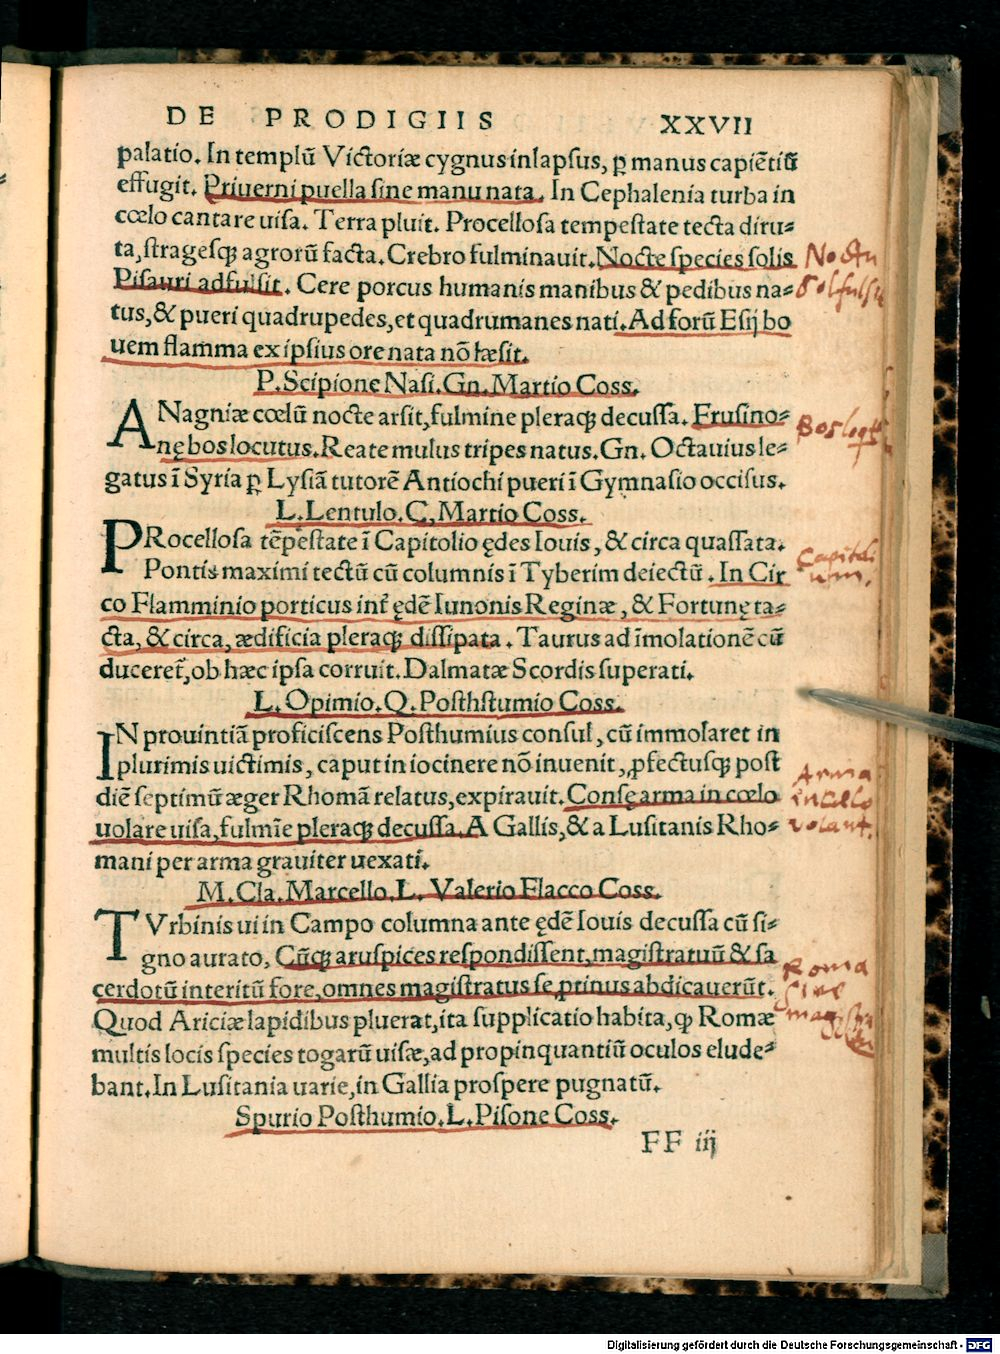 DE PRODIGIIS XXVII
palatio. In templũ Victoriæ cygnus inlapsus, ꝑ manus capiẽtiũ
effugit. Priuerni puella sine manu nata. In Cephalenia turba in
cœlo cantare uisa. Terra pluit. Procellosa tempestate tecta diru-
ta, stragesqꝫ agrorũ facta. Crebro fulminauit. Nocte species solis
Pisauri adfulsit. Cere porcus humanis manibus & pedibus na-
tus, & pueri quadrupedes, et quadrumanes nati. Ad forũ Esij bo
uem flamma ex ipsius ore nata nõ læsit.
P. Scipione Nasi. Gn. Martio Coss.
ANagniæ cœlũ nocte arsit, fulmine pleraqꝫ decussa. Frusino-
nę bos locutus. Reate mulus tripes natus. Gn. Octauius le-
gatus ĩ Syria ꝑ Lysiã tutorẽ Antiochi pueri ĩ Gymnasio occisus.
L. Lentulo. C, Martio Coss.
PRocellosa tẽpestate ĩ Capitolio ędes Iouis, & circa quassata.
Pontis maximi tectũ cũ columnis ĩ Tyberim deiectũ. In Cir
co Flamminio porticus int̃ ędẽ Iunonis Reginæ, & Fortunę ta-
cta, & circa, ædificia pleraqꝫ dissipata. Taurus ad ĩmolationẽ cũ
duceret̃, ob hæc ipsa corruit. Dalmatæ Scordis superati.
L. Opimio. Q. Posthstumio Coss.
IN prouintiã proficiscens Posthumius consul, cũ immolaret in
plurimis uictimis, caput in iocinere nõ inuenit, ꝓfectusqꝫ post
diẽ septimũ æger Rhomã relatus, expirauit. Consę arma in cœlo
uolare uisa, fulmĩe pleraqꝫ decussa. A Gallis, & a Lusitanis Rho-
mani per arma grauiter uexati.
M. Cla. Marcello. L. Valerio Flacco Coss.
TVrbinis ui in Campo columna ante ędẽ Iouis decussa cũ si-
gno aurato, Cũqꝫ aruspices respondissent, magistratuũ & sa
cerdotũ interitũ fore, omnes magistratus se ꝓtinus abdicauerũt.
Quod Ariciæ lapidibus pluerat, ita supplicatio habita, ꝙ Romæ
multis locis species togarũ uisæ, ad propinquantiũ oculos elude-
bant. In Lusitania uarie, in Gallia prospere pugnatũ.
Spurio Posthumio. L. Pisone Coss.
FF iij
Bos
Capitoli
um.
Arma
in cœlo
volant.
Roma
sine
Digitalisierung gefördert durch die Deutsche Forschungsgemeinschaft - DFG